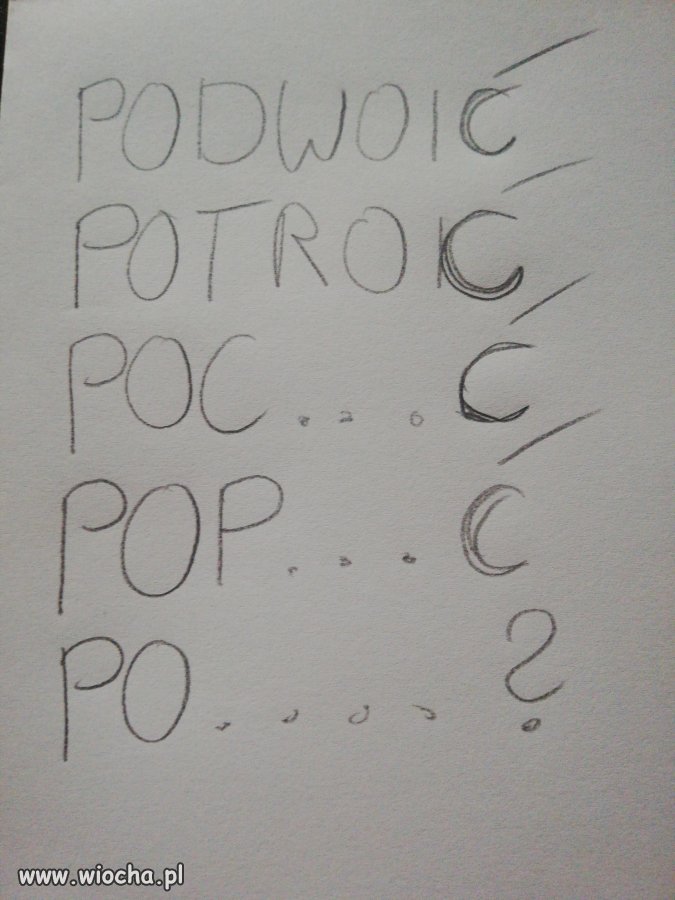 PODWOIĆ
POTROIĆ
POC...Ć
POP...Ć
PO....?
www.wiocha.pl